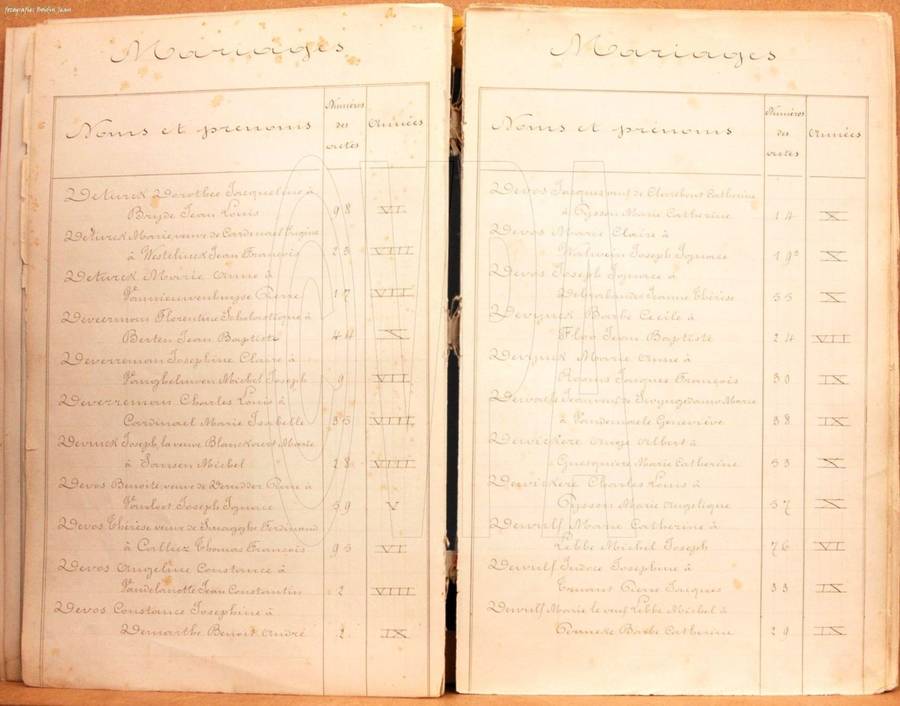 fotografie: Boidin Juan
Mariages
Noms et prénoms
Numéros des actes
Années
Deturck Dorothée Jacqueline à
Bryde Jean Louis 98 VI
Deturck Marie, veuve de Cardinael Eugène
à Westelinck Jean François 23 VIII
Deturck Marie Anne à
Vannieuwenhuyse Pierre 17 VII
Deveerman Florentine Scholastique à
Berten Jean Baptiste 44 X
Deverreman Josephine Claire à
Michel Joseph 9 VII
Deverreman Charles Louis à
Cardinael Marie Isabelle 35 VIII
Joseph, la veuve Blanckaert Marie
à Jansen Michel 28 VIII
Devos Benoite, veuve de Dendder Pierre à
Joseph Ignace 59 V
Devos Thérèse veuve de Smagghe Ferdinand
à Calliez Thomas François 95 VI
Devos Angeline Constance à
Vandelanotte Jean Constantin 2 VIII
Devos Constance Josephine à
Demarthe Benoit André 2 IX
Mariages
Noms et prénoms
Numéros des actes
Années
Devos Jacques veuf de Catherine
à Pysson Marie Catherine 14 X
Devos Marie Claire à
Joseph Ignace X
Devos Joseph Ignace à
Jeanne Thérèse 55 X
Barbe Cecile à
Jean Baptiste 24 VII
Marie Anne à
Jacques François 30 IX
Marie
à Vandemaele Geneviève 38 IX
Dewickere Ange Albert à
Guesquiere Marie Catherine 53 X
Dewickere Charles Louis à
Pysson Marie Angelique 57 X
Dewulf Marie Catherine à
Libbe Michel Joseph 76 VI
Dewulf Judoce Josephine à
Pierre Jacques 33 IX
Dewulf Marie le veuf Libbe Michel à
Barbe Catherine 29 IX